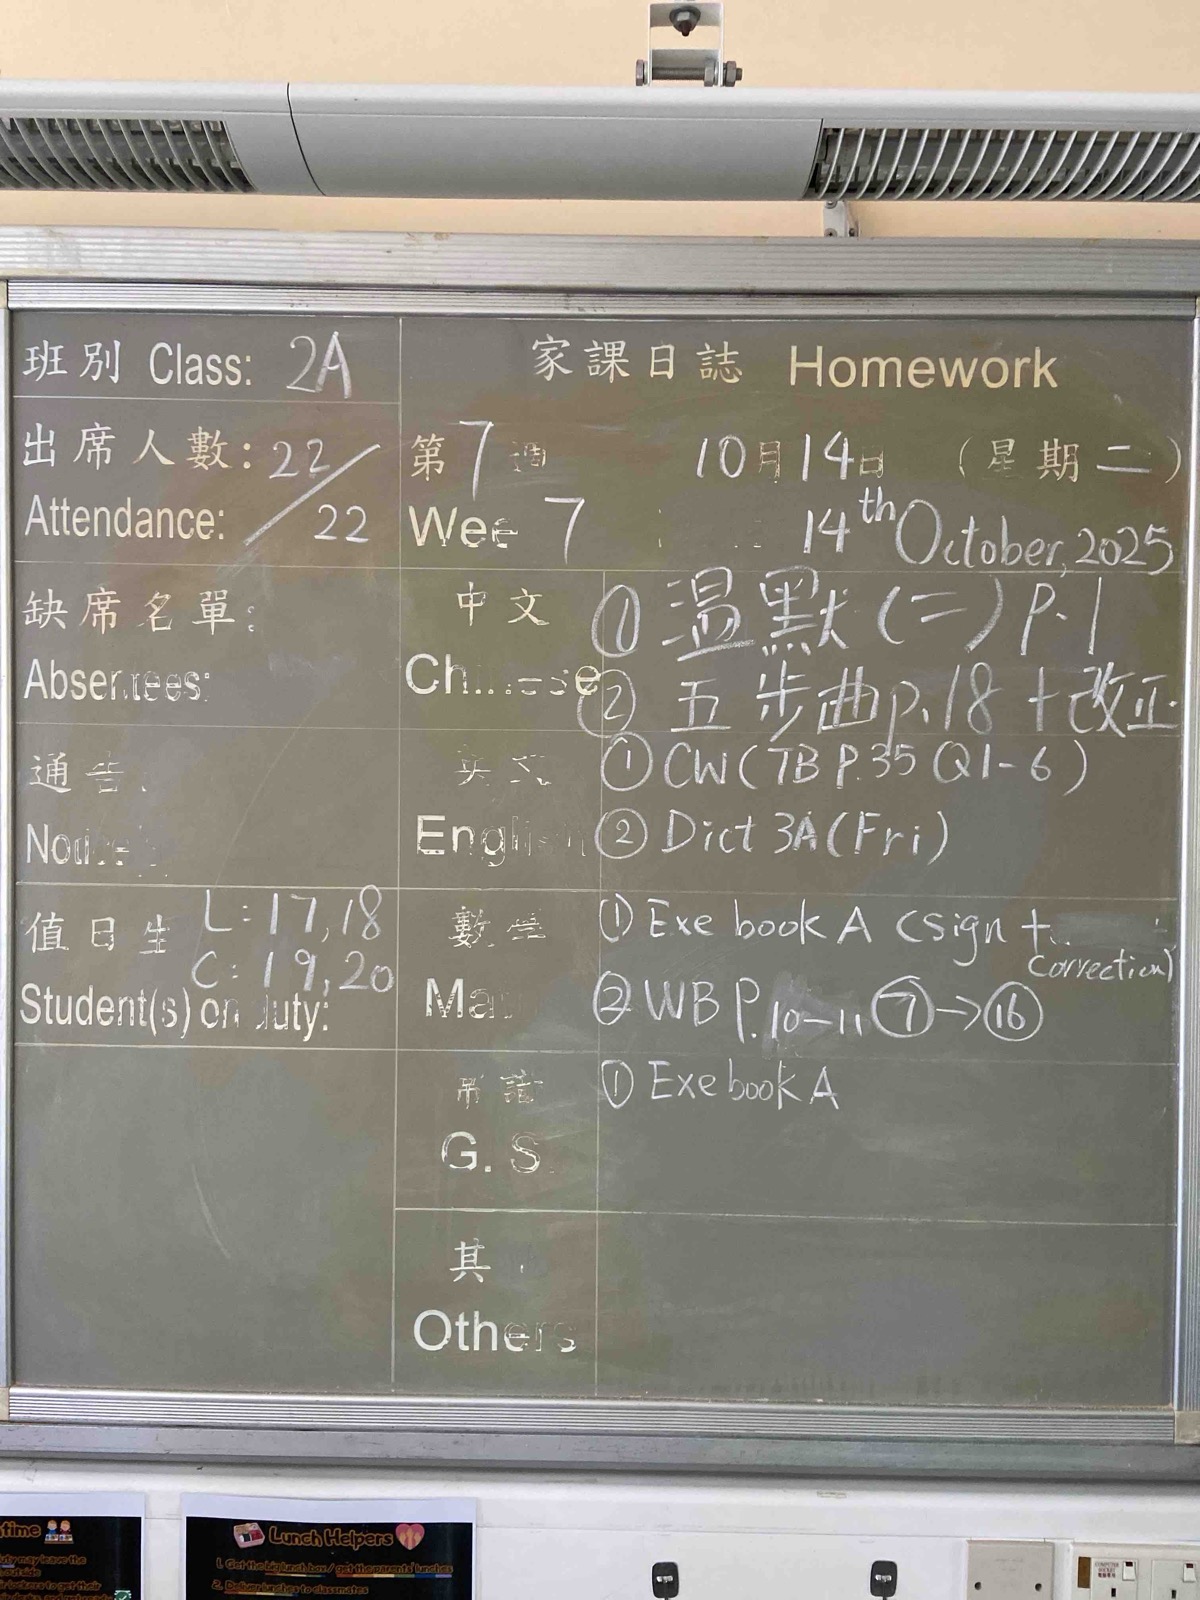 班別 Class: 2A
家課日誌 Homework
出席人數: 22/22
Attendance:
第7週 10月14日 (星期二)
Wee 7 14th October, 2025
缺席名單:
Absentees:
中文
Chinese
① 温默(二) P.1
② 五步曲 p.18 + 改正
通告
英文
English
① CW (TB P.35 Q1-6)
② Dict 3A (Fri)
值日生 L: 17, 18
C: 19, 20
Student(s) on duty:
數
Ma
① Exe book A (sign + correction)
② WB P.10-11 ⑦→⑯
常識
G. S.
① Exe book A
其
Others
time
Lunch Helpers
1. Get the big lunch box / get the parents' lunches
2. Deliver lunches to classmates
may leave the
outside
lockers to get their
COMPUTER
SOCKET